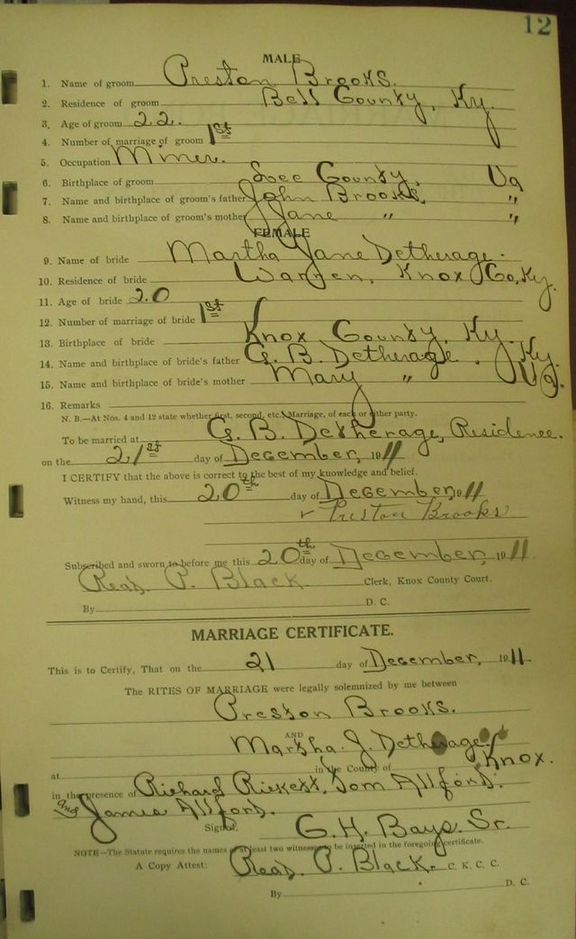 12
MALE
1. Name of groom Preston Brooks.
2. Residence of groom Bell County, Ky.
3. Age of groom 22.
4. Number of marriage of groom 1st
5. Occupation Miner.
6. Birthplace of groom Lee County, Va
7. Name and birthplace of groom's father John Brooks, "
8. Name and birthplace of groom's mother Jane " "
FEMALE
9. Name of bride Martha Jane Detherage.
10. Residence of bride Warren, Knox Co, Ky.
11. Age of bride 20
12. Number of marriage of bride 1st
13. Birthplace of bride Knox County, Ky.
14. Name and birthplace of bride's father G. B. Detherage. Ky.
15. Name and birthplace of bride's mother Mary " Va.
16. Remarks
N. B.—At Nos. 4 and 12 state whether first, second, etc., Marriage, of each or either party.
To be married at G. B. Detherage, Residence.
on the 21st day of December, 1911
I CERTIFY that the above is correct to the best of my knowledge and belief.
Witness my hand, this 20th day of December, 1911
Preston Brooks
Subscribed and sworn to before me this 20th day of December, 1911
Read. P. Black Clerk, Knox County Court.
By D. C.
MARRIAGE CERTIFICATE.
This is to Certify, That on the 21 day of December, 1911.
The RITES OF MARRIAGE were legally solemnized by me between
Preston Brooks.
AND
Martha. J. Detherage.
at in the County of Knox.
in the presence of Richard Rickett, Tom Allford.
and James Allford.
Signed, G. H. Bays. Sr.
NOTE—The Statute requires the names of at least two witnesses to be inserted in the foregoing certificate.
A Copy Attest: Read. P. Black. C. K. C. C.
By D. C.